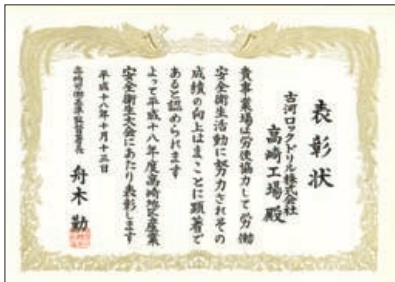 表彰状
古河ロックドリル株式会社
高崎工場殿
貴事業場は労使協力して労働
安全衛生活動に努力されその
成績の向上はまことに顕著で
あると認められます
よって平成十八年度高崎地区産業
安全衛生大会にあたり表彰します
平成十八年十月十三日
高崎労働基準監督署長
舟木勤